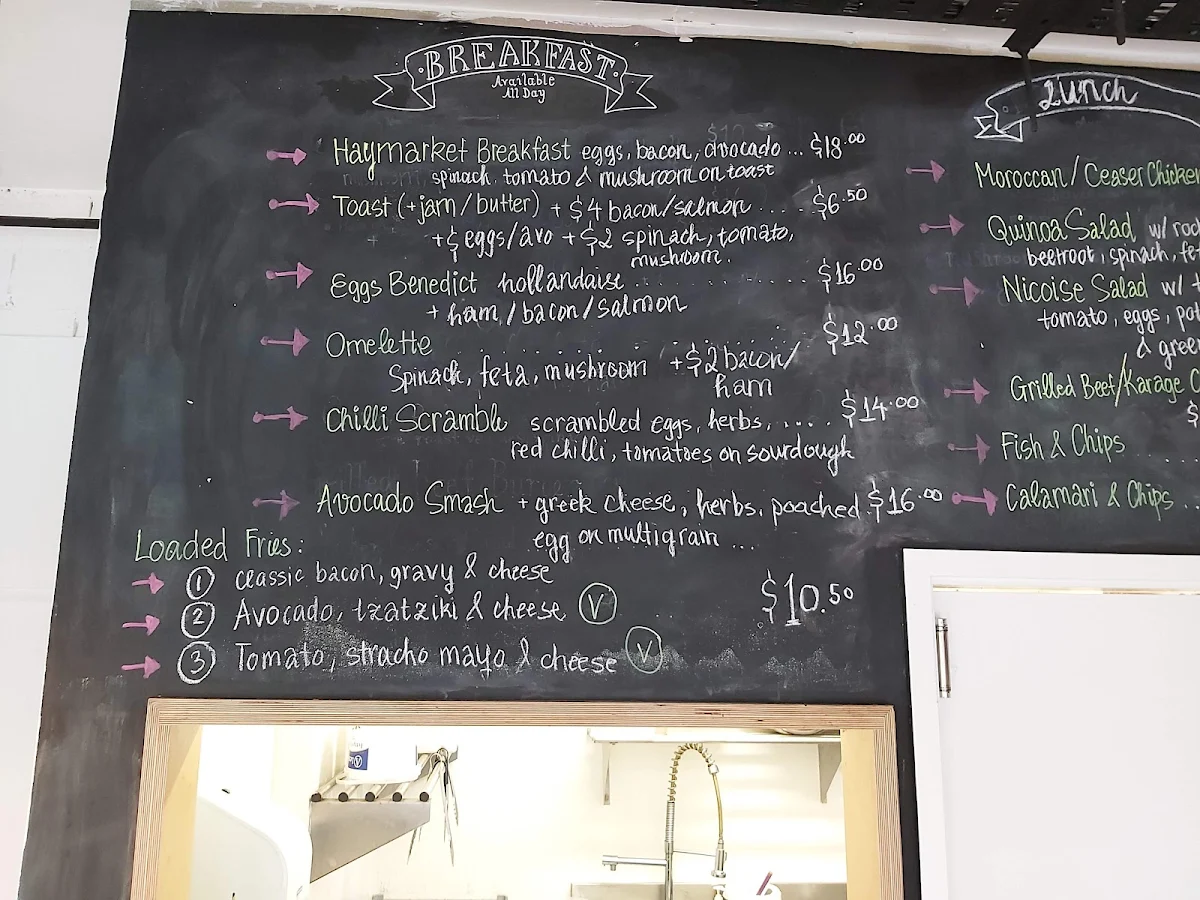 BREAKFAST
Available
All Day
Haymarket Breakfast eggs, bacon, avocado ... $18.00
spinach, tomato & mushroom on toast
Toast (+jam/butter) + $4 bacon/salmon ..... $6.50
+$ eggs/avo +$2 spinach, tomato,
mushroom.
Eggs Benedict hollandaise ............ $16.00
+ ham/bacon/salmon
Omelette .................. $12.00
Spinach, feta, mushroom +$2 bacon/
ham
Chilli Scramble scrambled eggs, herbs, .... $14.00
red chilli, tomatoes on sourdough
Avocado Smash + greek cheese, herbs, poached $16.00
egg on multigrain ...
Loaded Fries:
1 classic bacon, gravy & cheese
2 Avocado, tzatziki & cheese V
$10.50
3 Tomato, stracho mayo & cheese V
Lunch
Moroccan/Ceaser Chicken
Quinoa Salad w/
beetroot, spinach,
Nicoise Salad w/
tomato, eggs,
&
Grilled Beef/Karage
$
Fish & Chips ...
Calamari & Chips ..